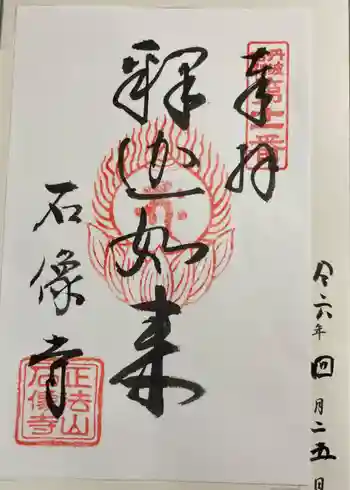 奉拝
釈迦如来
石像寺
正法山
石像寺
令六年四月二五日